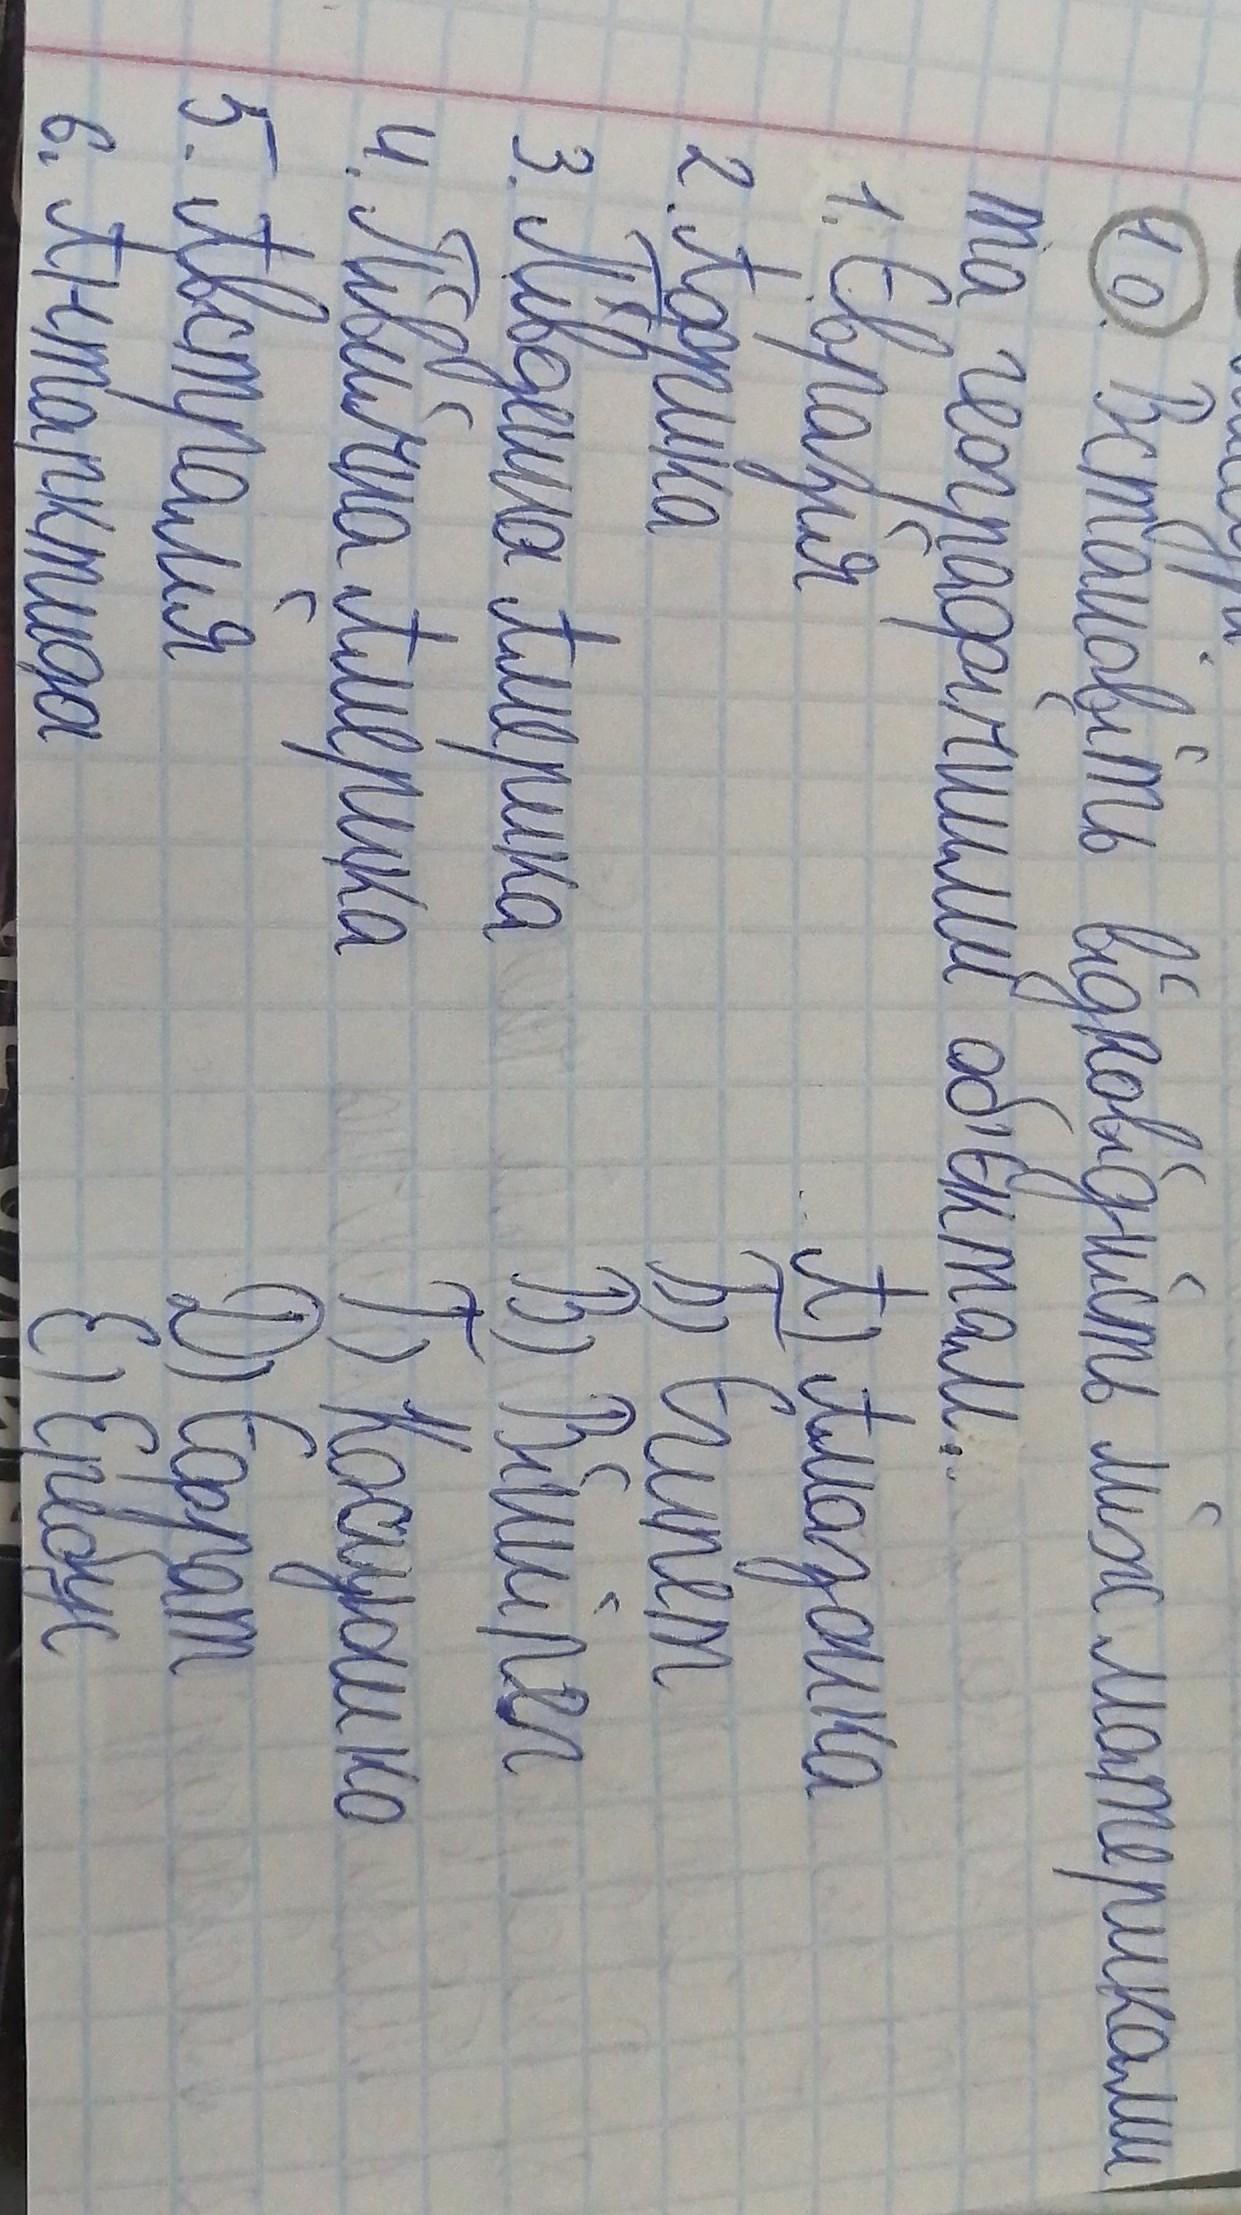 10. Встановіть відповідність між материками
та географічними об'єктами.
1. Євразія А) Амазонка
2. Африка Б) Єгипет
3. Південна Америка В) Вінніпег
4. Північна Америка Г) Косцюшко
5. Австралія Д) Еверест
6. Антарктида Е) Еребус